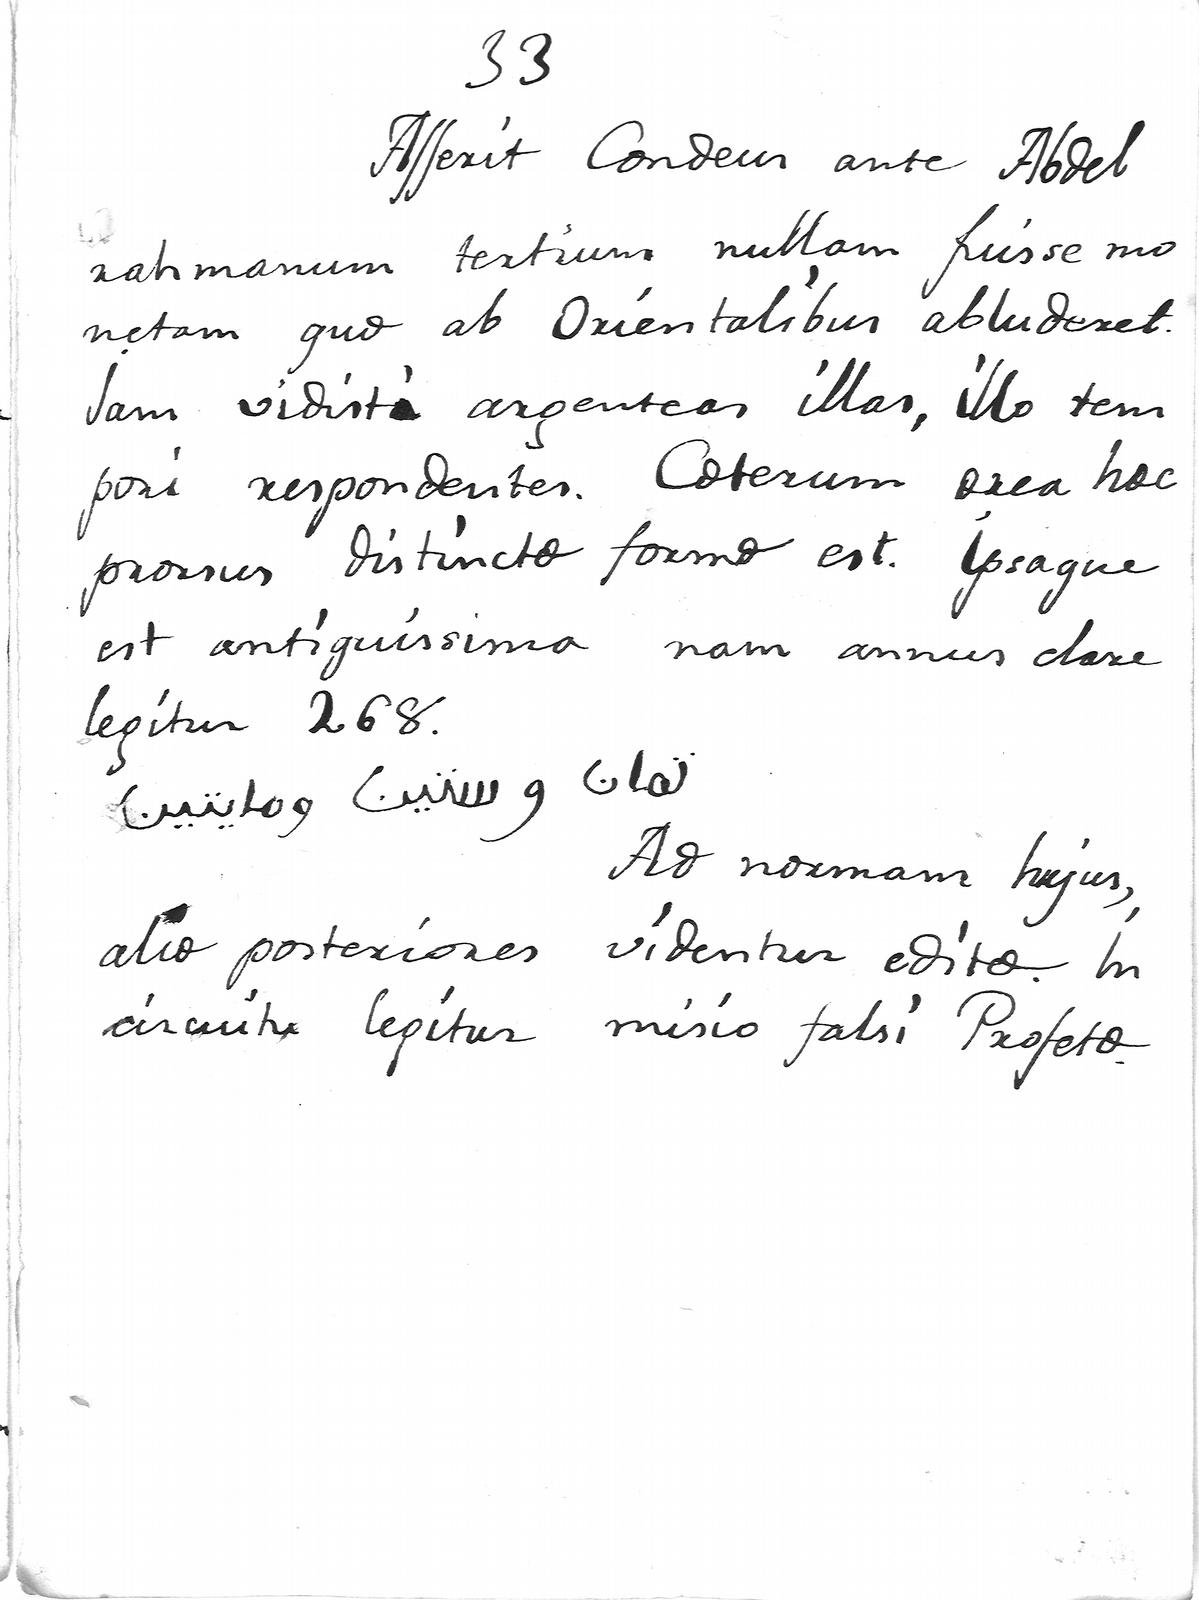 33
Asserit Condeus ante Abdel
rahmanum tertium nullam fuisse mo
netam quæ ab Orientalibus abluderet.
Jam vidisti argenteas illas, illo tem
pori respondentes. Cæterum ærea hæc
prorsus distinctæ formæ est. Ipsaque
est antiquissima nam annus clare
legitur 268.
ثمان و ستين ومايتين
Ad normam hujus,
aliæ posteriores videntur editæ. In
circuitu legitur misio falsi Profetæ.